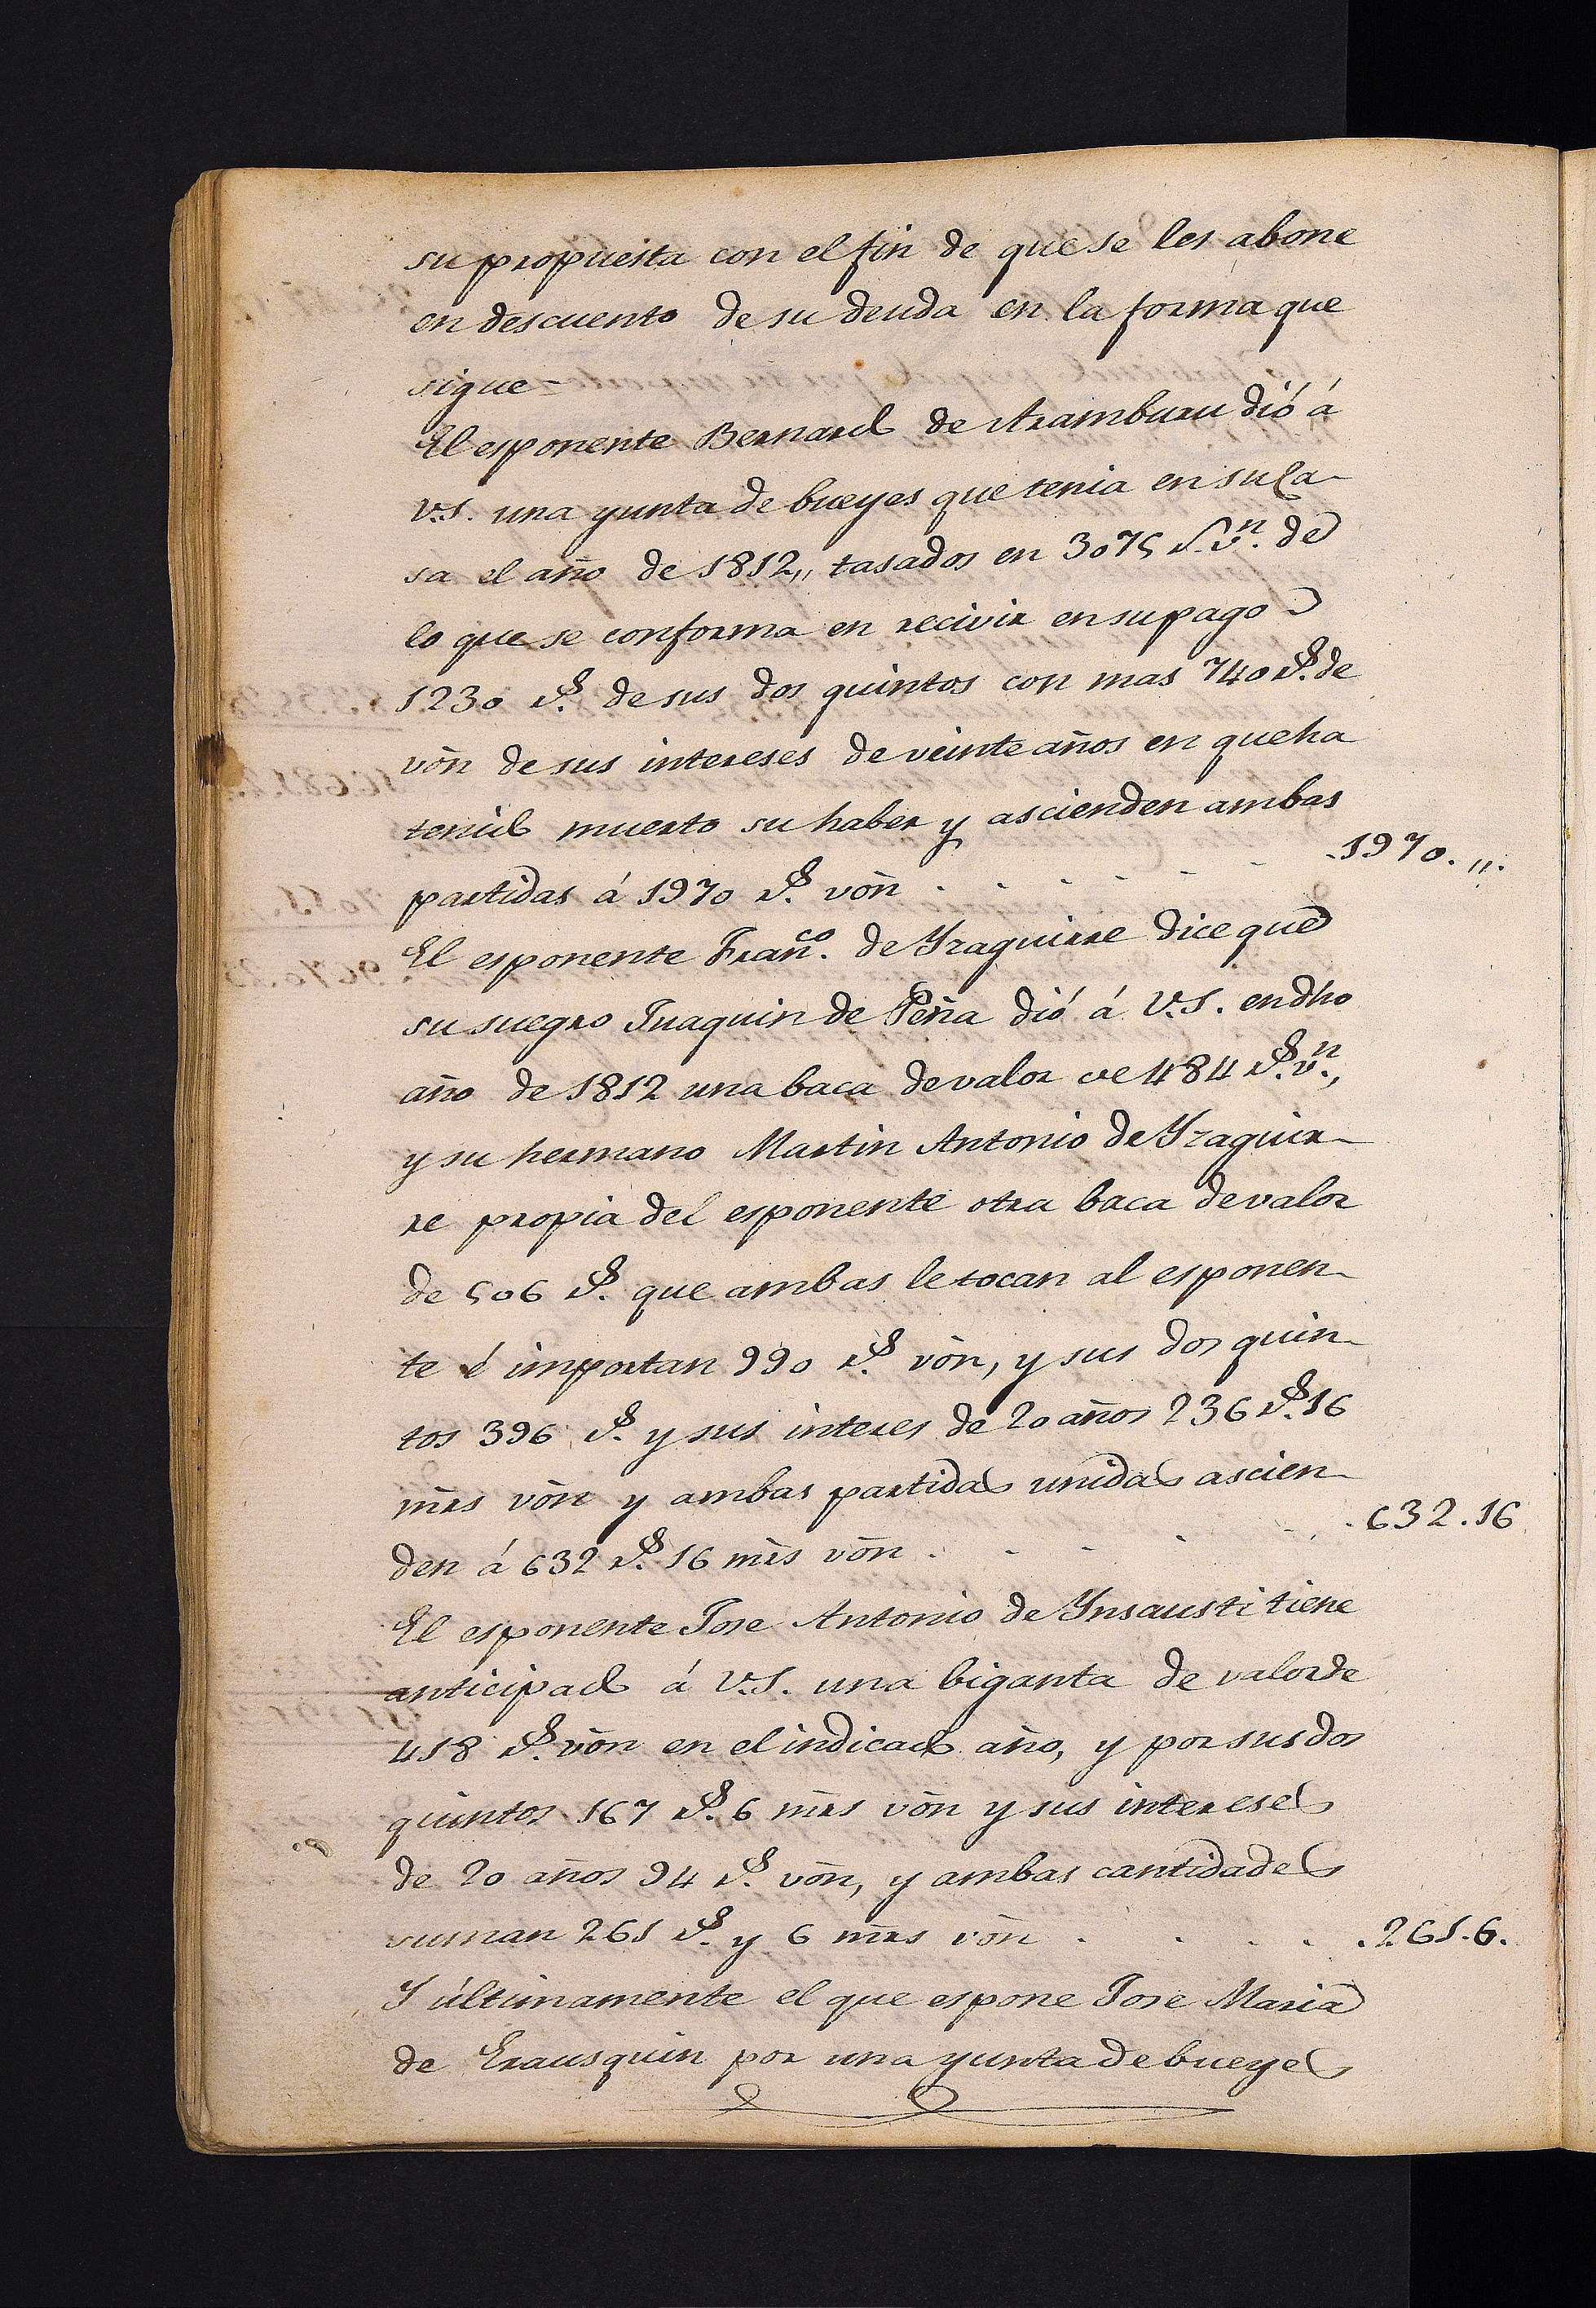 su propuesta con el fin de que se les abone
en descuento de su deuda en la forma que
sigue=
El esponente Bernardo de Aramburu dió á
V.S. una yunta de bueyes que tenia en su ca-
sa el año de 1812,, tasados en 3075 r.vn. de
lo que se conforma en recivir en su pago
1230 rs. de sus dos quintos con mas 740 rs. de
von de sus intereses de veinte años en que ha
tenido muerto su haber y ascienden ambas
partidas á 1970 rs. von . . . . . . . 1970. ,,.
El esponente Franco. de Yzaguirre dice que
su suegro Juaquin de Peña dió á V.S. en dho
año de 1812 una baca de valor de 484 rs. vn.,
y su hermano Martin Antonio de Yzaguir-
re propia del esponente otra baca de valor
de 506 rs. que ambas le tocan al esponen-
te é importan 990 rs. von, y sus dos quin-
tos 396 rs. y sus interes de 20 años 236 rs. 16
mrs von y ambas partidas unidas ascien-
den á 632 rs. 16 mrs von . . . . . . 632.16
El esponente Jose Antonio de Ynsausti tiene
anticipado á V.S. una biganta de valor de
418 rs. von en el indicado año, y por sus dos
quintos 167 rs. 6 mrs von y sus intereses
de 20 años 94 rs. von, y ambas cantidades
suman 261 rs. y 6 mrs von . . . . . 261.6.
Y últimamente el que espone Jose Maria
de Erausquin por una yunta de bueyes